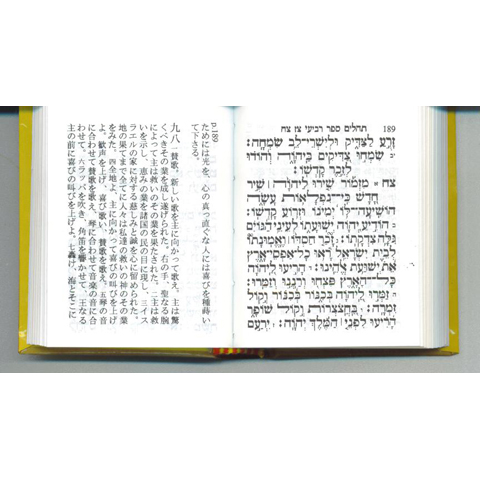 p.189
ためには光を、心の真っ直ぐな人には喜びを種蒔い
て下さる。
九八 一賛歌。新しい歌を主に向かって歌え、主は驚
くべきその業を成し遂げられた。右の手、聖なる腕
によって主は救いのその業を果たされた。二主は救
いを示し、恵みの業を諸国の民の目に現し、三イス
ラエルの家に対する慈しみと誠を心に留められた。
地の果てまで全てに人々は私達の救いの神のその業
をみた。四全地よ、主に向かって喜びの叫びを上げ
よ。歓声を上げ、喜び歌い、賛歌を歌え。五琴の音
に合わせて賛歌を歌え、琴に合わせて音楽の音に合
わせて。六ラッパを吹き、角笛を響かせて、王なる
主の前に喜びの叫びを上げよ。七轟け、海とそこに
תהלים ספר רביעי צז צח 189
זָרֻעַ לַצַּדִּיק וּלְיִשְׁרֵי־לֵב שִׂמְחָה׃
יב שִׂמְחוּ צַדִּיקִים בַּיהוָה וְהוֹדוּ
לְזֵכֶר קָדְשׁוֹ׃
צח א מִזְמוֹר שִׁירוּ לַיהוָה ׀ שִׁיר
חָדָשׁ כִּי־נִפְלָאוֹת עָשָׂה
הוֹשִׁיעָה־לּוֹ יְמִינוֹ וּזְרוֹעַ קָדְשׁוֹ׃
ב הוֹדִיעַ יְהוָה יְשׁוּעָתוֹ לְעֵינֵי הַגּוֹיִם
גִּלָּה צִדְקָתוֹ׃ ג זָכַר חַסְדּוֹ ׀ וֶאֱמוּנָתוֹ
לְבֵית יִשְׂרָאֵל רָאוּ כָל־אַפְסֵי־אָרֶץ
אֵת יְשׁוּעַת אֱלֹהֵינוּ׃ ד הָרִיעוּ לַיהוָה
כָּל־הָאָרֶץ פִּצְחוּ וְרַנְּנוּ וְזַמֵּרוּ׃
ה זַמְּרוּ לַיהוָה בְּכִנּוֹר בְּכִנּוֹר וְקוֹל
זִמְרָה׃ ו בַּחֲצֹצְרוֹת וְקוֹל שׁוֹפָר
הָרִיעוּ לִפְנֵי ׀ הַמֶּלֶךְ יְהוָה׃ ז יִרְעַם